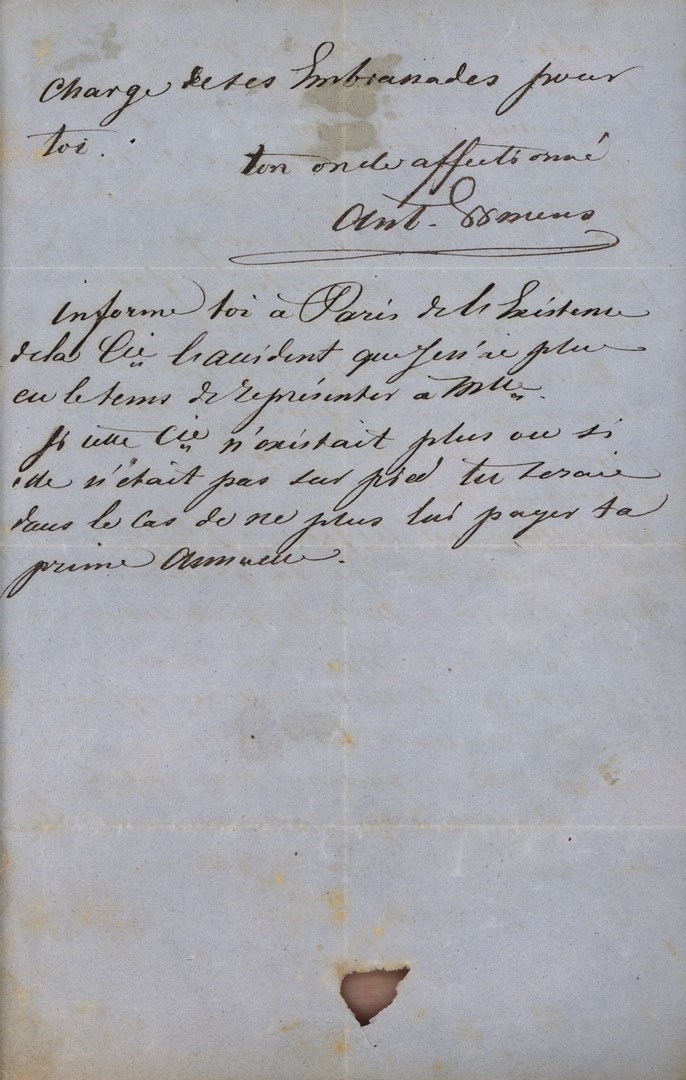 charge de ses Embrassades pour
toi.
ton oncle affectionné
Ant.
informe toi à Paris de l'Existence
de la Cie l'accident que je n'ai plus
eu le tems de représenter à Mlle.
Si cette Cie n'existait plus ou si
elle n'était pas sur pied tu serais
dans le cas de ne plus lui payer ta
prime Annuelle.